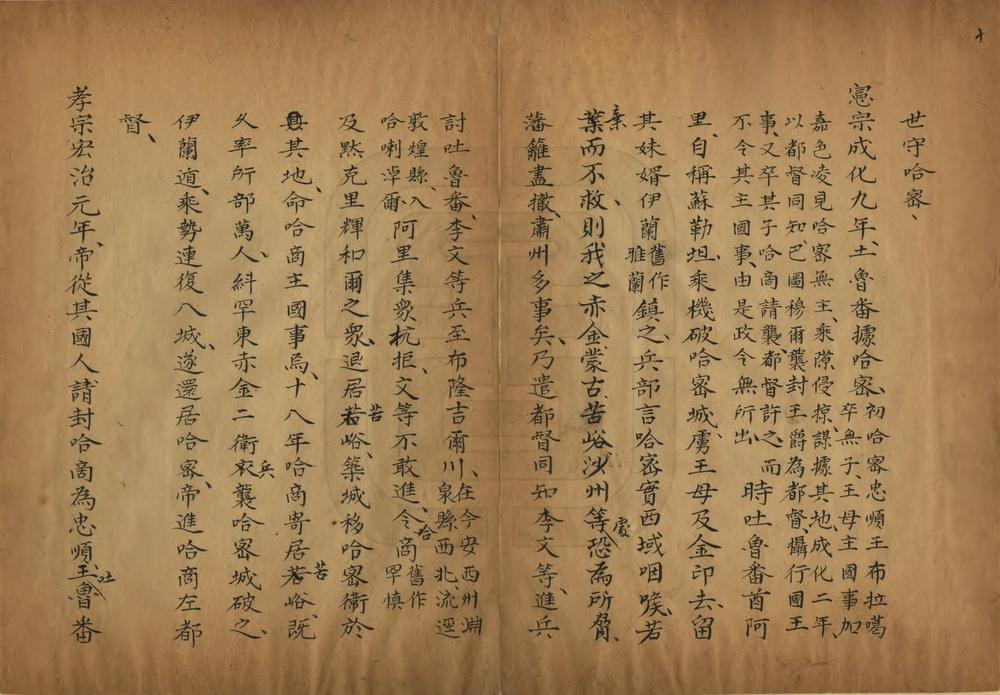 十
世守哈密、
憲宗成化九年、土魯番據哈密、初哈密忠順王布拉噶
卒、無子、王母主國事、加
嘉色凌見哈密無主、乘隙侵掠、謀據其地、成化二年、
以都督同知巴圖穆爾襲封王爵為都督、攝行國王
事、又卒、其子哈商請襲都督、許之、而
不令其主國事、由是政令無所出、時吐魯番酋阿
里、自稱蘇勒坦、乘機破哈密城、虜王母及金印去、留
其妹婿伊蘭舊作
雅蘭鎮之、兵部言哈密實西域咽喉、若
棄而不救、則我之赤金蒙古苦峪沙州等處恐為所脅、
藩籬盡撤、肅州多事矣、乃遣都督同知李文等、進兵
討吐魯番、李文等兵至布隆吉爾川、在今安西州淵
泉縣西北、流逕
敦煌縣、入
哈喇淖爾、阿里集衆抗拒、文等不敢進、令哈商舊作
罕慎
及默克里輝和爾之衆、退居苦峪、築城移哈密衛於
其地、命哈商主國事焉、十八年哈商寄居苦峪、既
久率所部萬人、糾罕東赤金二衛兵襲哈密城破之、
伊蘭遁、乘勢連復八城、遂還居哈密、帝進哈商左都
督、
孝宗宏治元年、帝從其國人請封哈商為忠順王、吐魯番